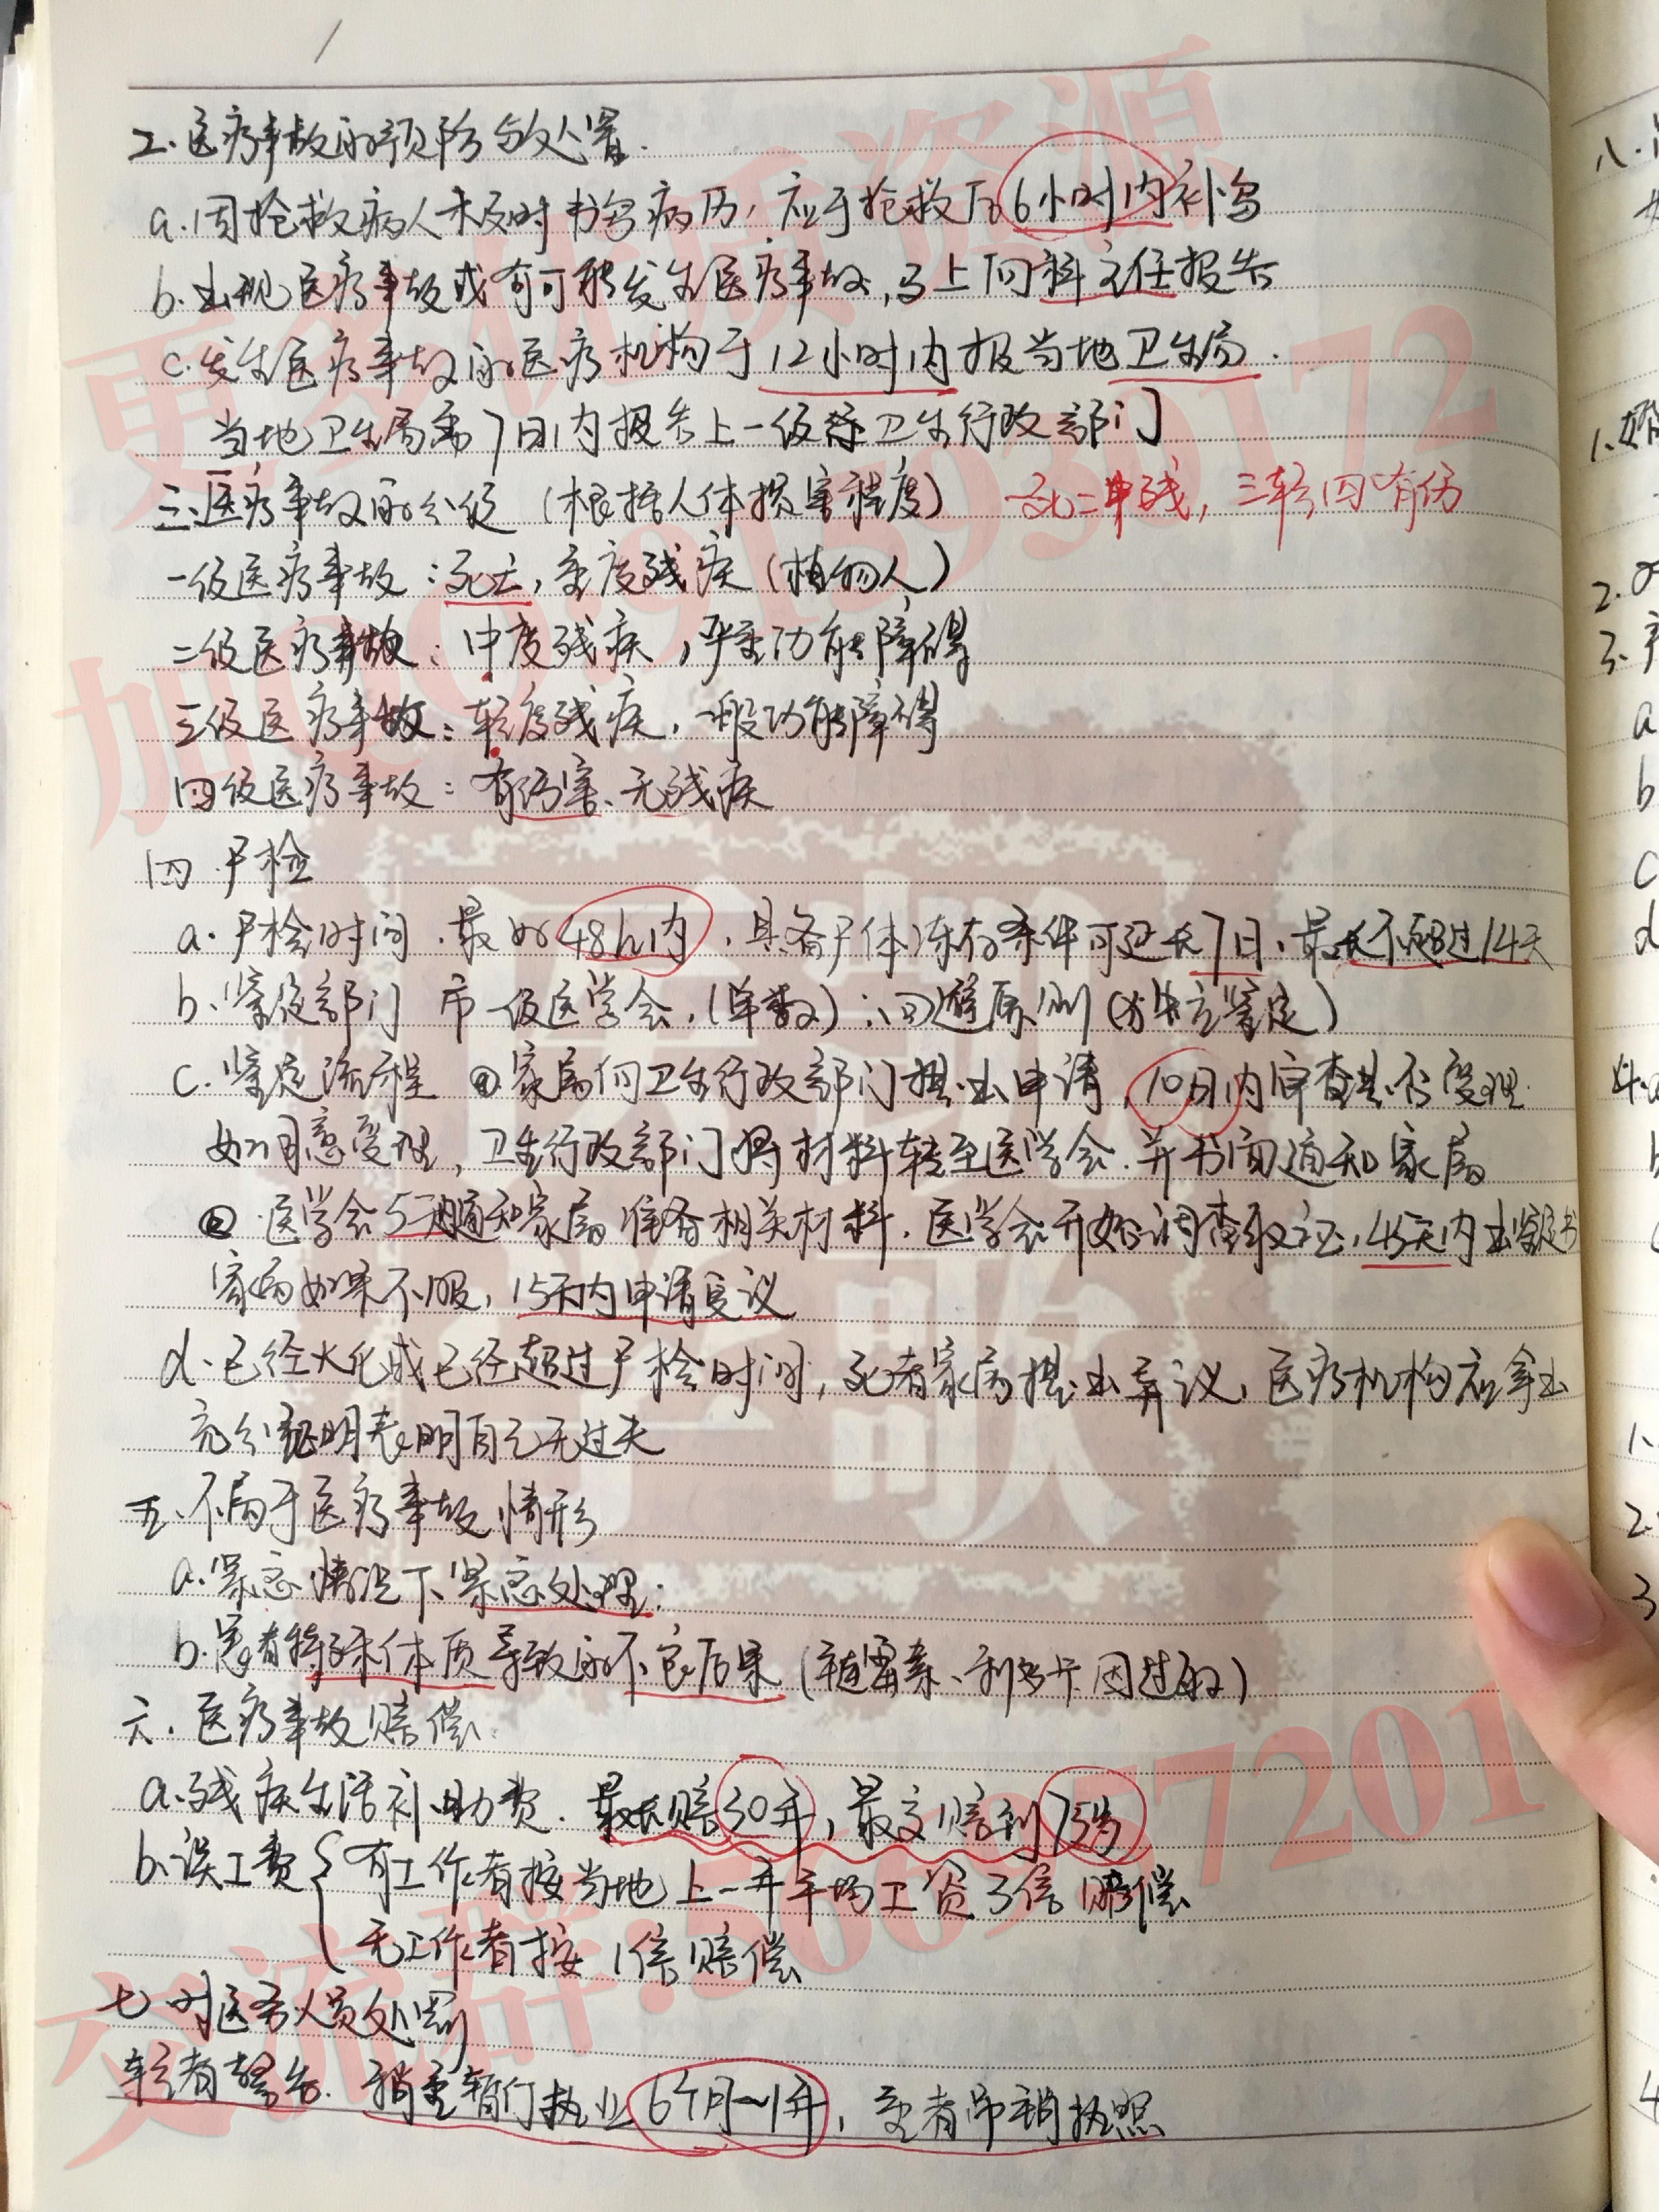 二.医疗事故的预防与处置.
a.因抢救病人未及时书写病历,应于抢救后6小时内补写
b.出现医疗事故或有可能发生医疗事故,马上向科主任报告
c.发生医疗事故的医疗机构于12小时内报当地卫生局.
当地卫生局需7日内报告上一级卫生行政部门
三.医疗事故的分级(根据人体损害程度) 一死二中残,三轻四有伤
一级医疗事故:死亡,重度残疾(植物人)
二级医疗事故:中度残疾,严重功能障碍
三级医疗事故:轻度残疾,一般功能障碍
四级医疗事故:有伤害、无残疾
四.尸检
a.尸检时间.最好48h内,具备尸体冻存条件可延长7日,最长不超过14天
b.鉴定部门 市一级医学会,(单数);回避原则(独立鉴定)
c.鉴定流程 ①家属向卫生行政部门提出申请,10日内审查是否受理.
如同意受理,卫生行政部门将材料转至医学会.并书面通知家属
② 医学会5天内通知家属准备相关材料.医学会开始调查取证,45天内出鉴定书
家属如果不服,15天内申请复议
d.已经火化或已经超过尸检时间,死者家属提出异议,医疗机构应拿出
充分证明表明自己无过失
五.不属于医疗事故情形
a.紧急情况下紧急处理;
b.患者特殊体质导致的不良后果(青霉素、利多卡因过敏)
六.医疗事故赔偿.
a.残疾生活补助费.最长赔30年,最高赔到75岁
b.误工费{有工作者按当地上一年平均工资3倍赔偿
无工作者按1倍赔偿
七.对医务人员处罚
轻者警告.稍重暂停执业6个月~1年,重者吊销执照
更多优质资源
加QQ: